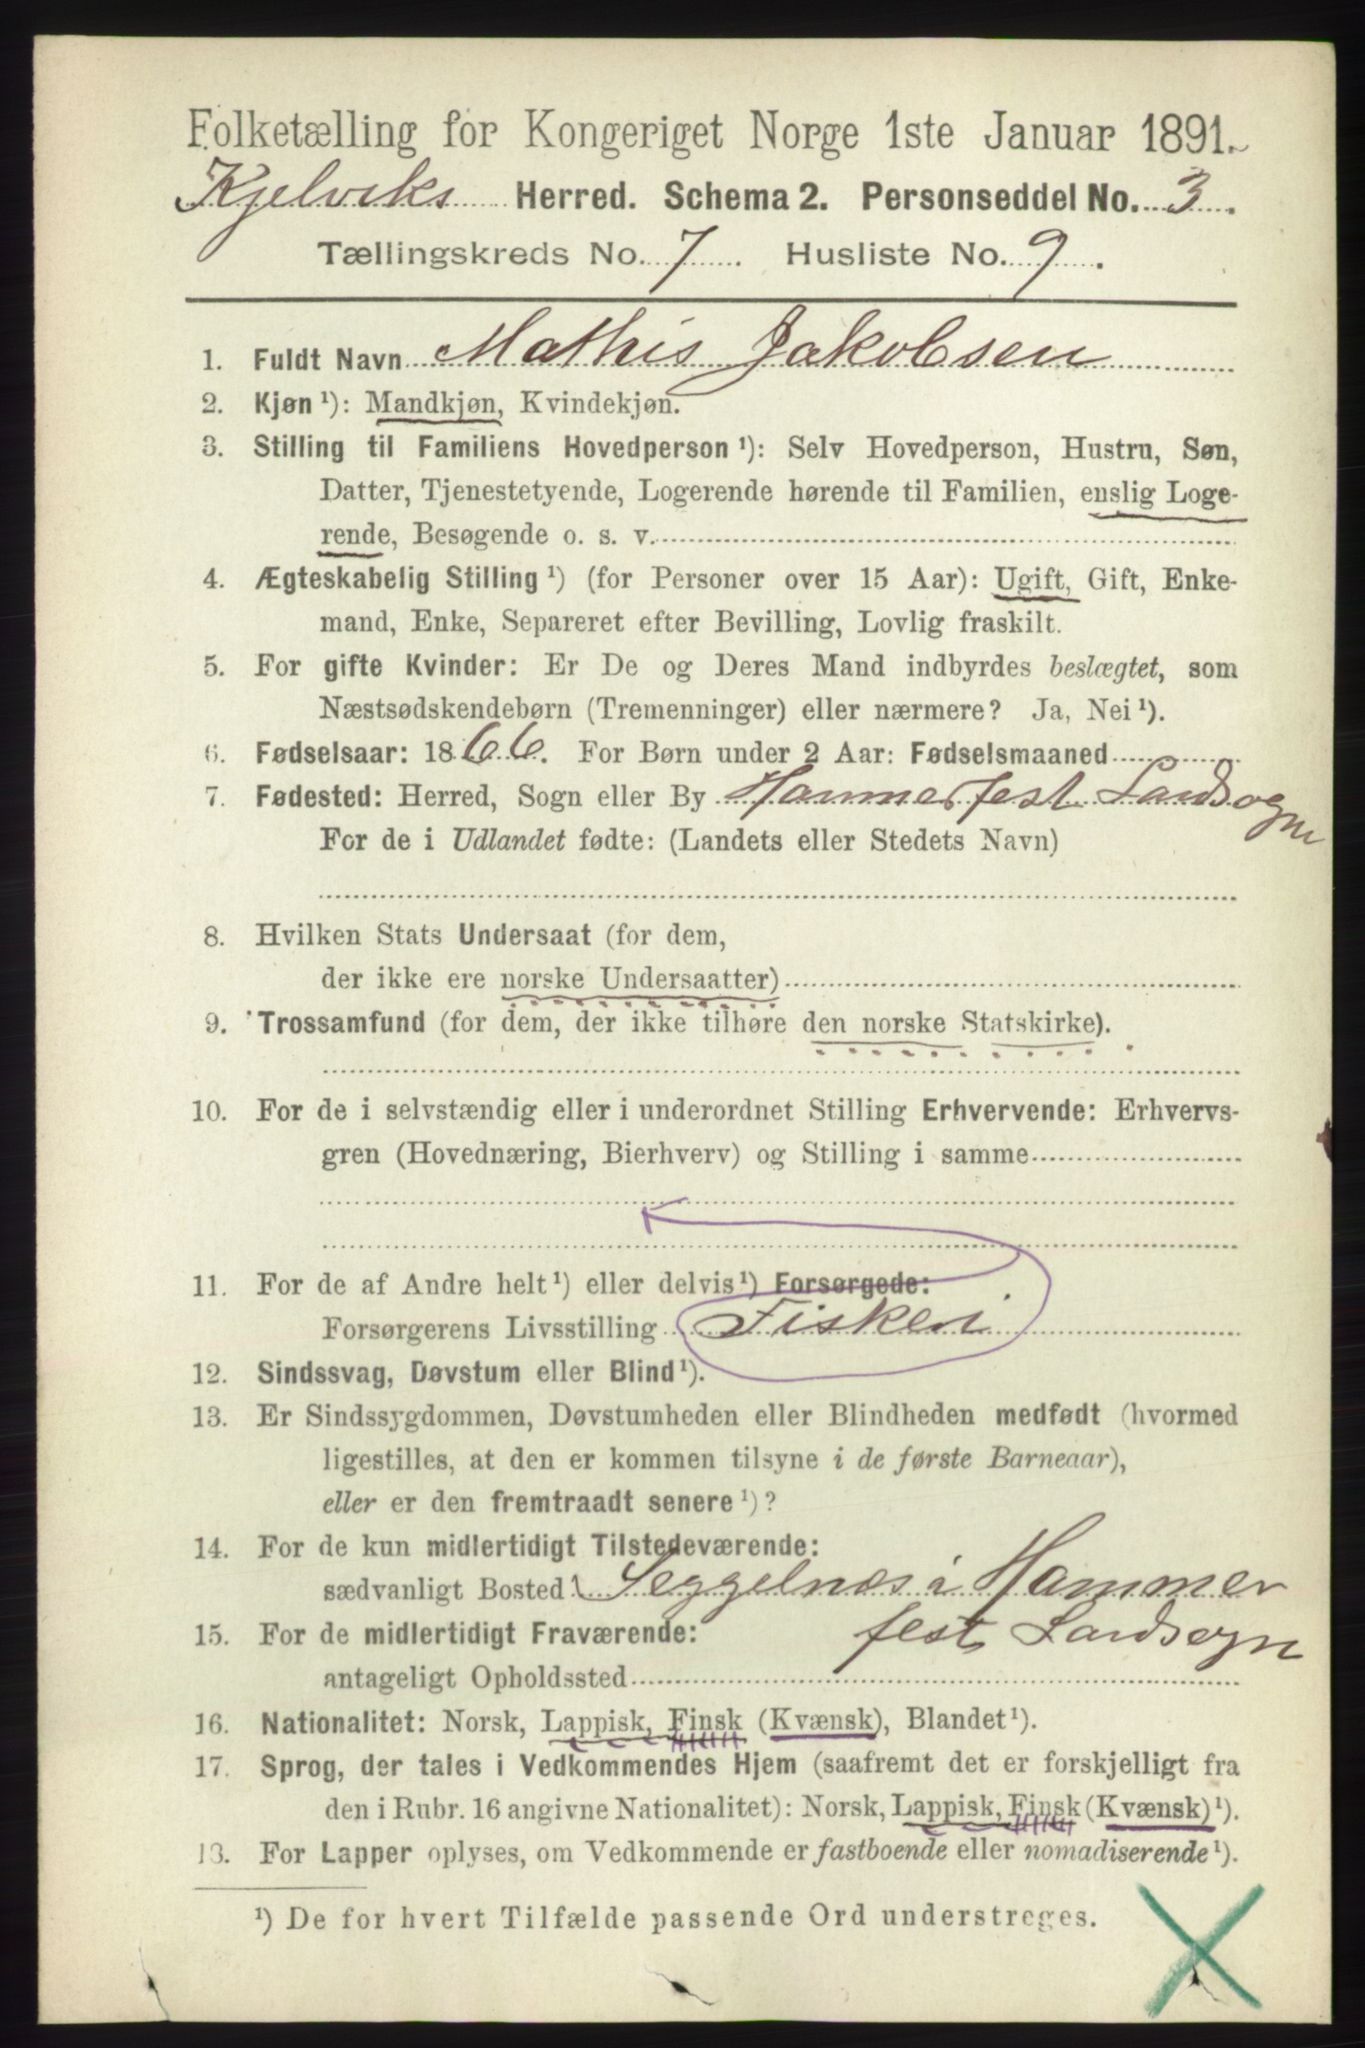 Folketælling for Kongeriget Norge 1ste Januar 1891.
Kjelviks Herred. Schema 2. Personseddel No. 3.
Tællingskreds No. 7. Husliste No. 9.
1. Fuldt Navn Mathis Jakobsen
2. Kjøn ¹): Mandkjøn, Kvindekjøn.
3. Stilling til Familiens Hovedperson ¹): Selv Hovedperson, Hustru, Søn,
Datter, Tjenestetyende, Logerende hørende til Familien, enslig Loge-
rende, Besøgende o. s. v.
4. Ægteskabelig Stilling ¹) (for Personer over 15 Aar): Ugift, Gift, Enke-
mand, Enke, Separeret efter Bevilling, Lovlig fraskilt.
5. For gifte Kvinder: Er De og Deres Mand indbyrdes beslægtet, som
Næstsødskendebørn (Tremenninger) eller nærmere? Ja, Nei ¹).
6. Fødselsaar: 1866. For Børn under 2 Aar: Fødselsmaaned
7. Fødested: Herred, Sogn eller By Hammerfest Landsogn
For de i Udlandet fødte: (Landets eller Stedets Navn)
8. Hvilken Stats Undersaat (for dem,
der ikke ere norske Undersaatter)
9. Trossamfund (for dem, der ikke tilhøre den norske Statskirke).
10. For de i selvstændig eller i underordnet Stilling Erhvervende: Erhvervs-
gren (Hovednæring, Bierhverv) og Stilling i samme
11. For de af Andre helt ¹) eller delvis ¹) Forsørgede:
Forsørgerens Livsstilling Fiskeri
12. Sindssvag, Døvstum eller Blind ¹).
13. Er Sindssygdommen, Døvstumheden eller Blindheden medfødt (hvormed
ligestilles, at den er kommen tilsyne i de første Barneaar),
eller er den fremtraadt senere ¹)?
14. For de kun midlertidigt Tilstedeværende:
sædvanligt Bosted i Hammer
15. For de midlertidigt Fraværende: fest Landsogn
antageligt Opholdssted
16. Nationalitet: Norsk, Lappisk, Finsk (Kvænsk), Blandet ¹).
17. Sprog, der tales i Vedkommendes Hjem (saafremt det er forskjelligt fra
den i Rubr. 16 angivne Nationalitet): Norsk, Lappisk, Finsk (Kvænsk) ¹).
18. For Lapper oplyses, om Vedkommende er fastboende eller nomadiserende ¹).
¹) De for hvert Tilfælde passende Ord understreges.